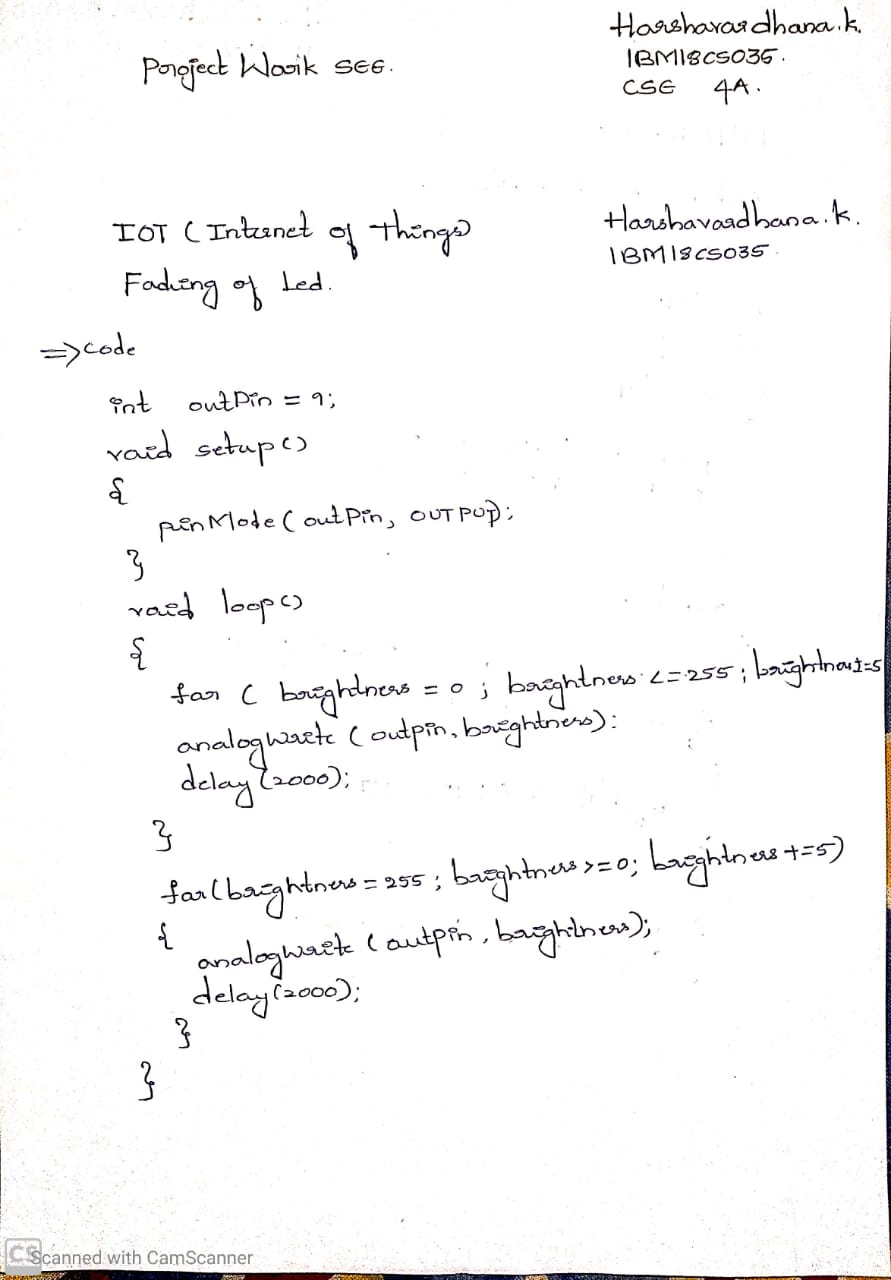 Harshavardhana.k.
Project Work SEE.
1BM18CS035.
CSE 4A.
IOT (Internet of Things)
Harshavardhana.k.
Fading of Led.
1BM18CS035
=> code
int outPin = 9;
void setup()
{
pinMode (outPin, OUTPUT);
}
void loop()
{
for ( brightness = 0 ; brightness <= 255 ; brightness+=5
analogwrite (outpin, brightness);
delay (2000);
}
for (brightness = 255 ; brightness >=0; brightness +=5)
{
analogwrite (outpin, brightness);
delay (2000);
}
}
CS Scanned with CamScanner